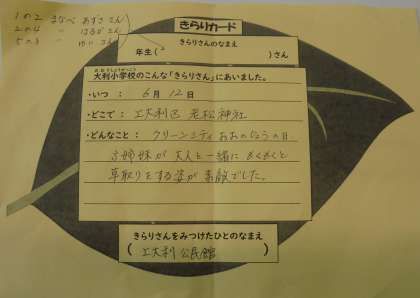 1の2 まなべ あずさ さん
2の4 〃 はるか さん
5の3 〃 ゆい さん
きらりカード
きらりさんのなまえ
年生( )さん
大利小学校のこんな「きらりさん」にあいました。
・いつ： 6月12日
・どこで： 上大利区 老松神社
・どんなこと： クリーンシティおおのじょうの日
3姉妹が大人と一緒にもくもくと
草取りをする姿が素敵でした。
きらりさんをみつけたひとのなまえ
( 上大利公民館 )